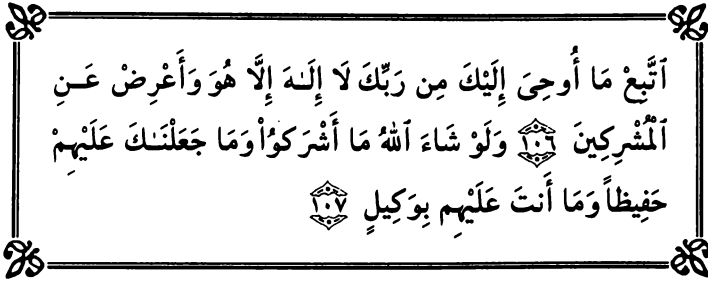 ٱتَّبِعْ مَا أُوحِىَ إِلَيْكَ مِن رَبِّكَ لَا إِلَـٰهَ إِلَّا هُوَ وَأَعْرِضْ عَـنِ
ٱلْمُشْرِكِينَ ١٠٦ وَلَوْ شَاءَ ٱللهُ مَا أَشْرَكُواْ وَمَا جَعَلْنَـٰكَ عَلَيْهِمْ
حَفِيظاً وَمَا أَنتَ عَلَيْهِم بِوَكِيلٍ ١٠٧